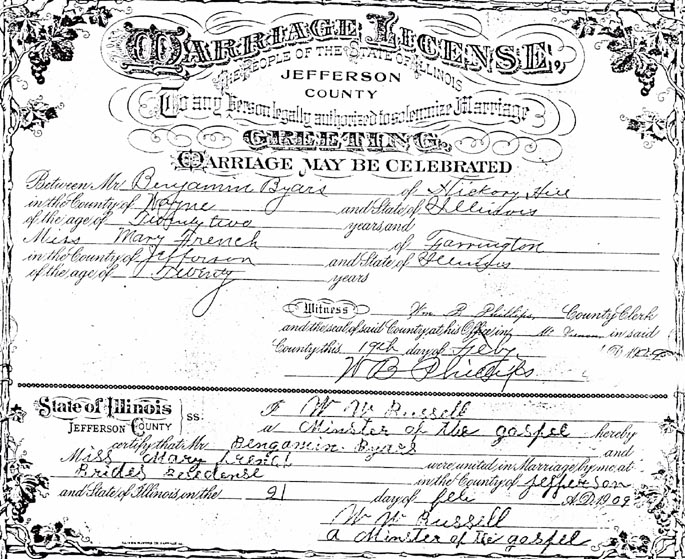 MARRIAGE LICENSE,
THE PEOPLE OF THE STATE OF ILLINOIS
JEFFERSON
COUNTY
To any Person legally authorized to solemnize Marriage
GREETING.
MARRIAGE MAY BE CELEBRATED
Between Mr. Benjamin Byars of Hickory Hill
in the County of Wayne and State of Illinois
of the age of Twenty two years and
Miss Mary French of Farrington
in the County of Jefferson and State of Illinois
of the age of Twenty years
Witness Wm B Phillips County Clerk
and the seal of said County at his Office in Mt Vernon in said
County this 19th day of Feby
W B Phillips
State of Illinois
JEFFERSON COUNTY
SS:
I W W Russell
a Minster of the gospel hereby
certify that Mr Bengamin Byars and
Miss Mary French were united in Marriage by me at
Brides Residense in the County of Jefferson
and State of Illinois, on the 21 day of feb A.D. 1909
W W Russell
a Minster of the gospel